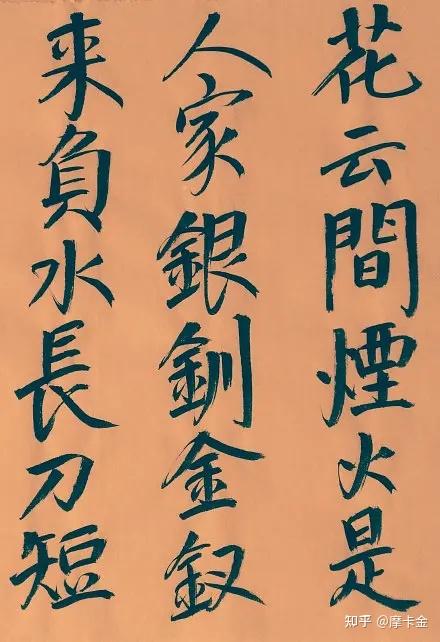 花云間煙火是
人家銀釧金釵
来負水長刀短
知乎 @摩卡金